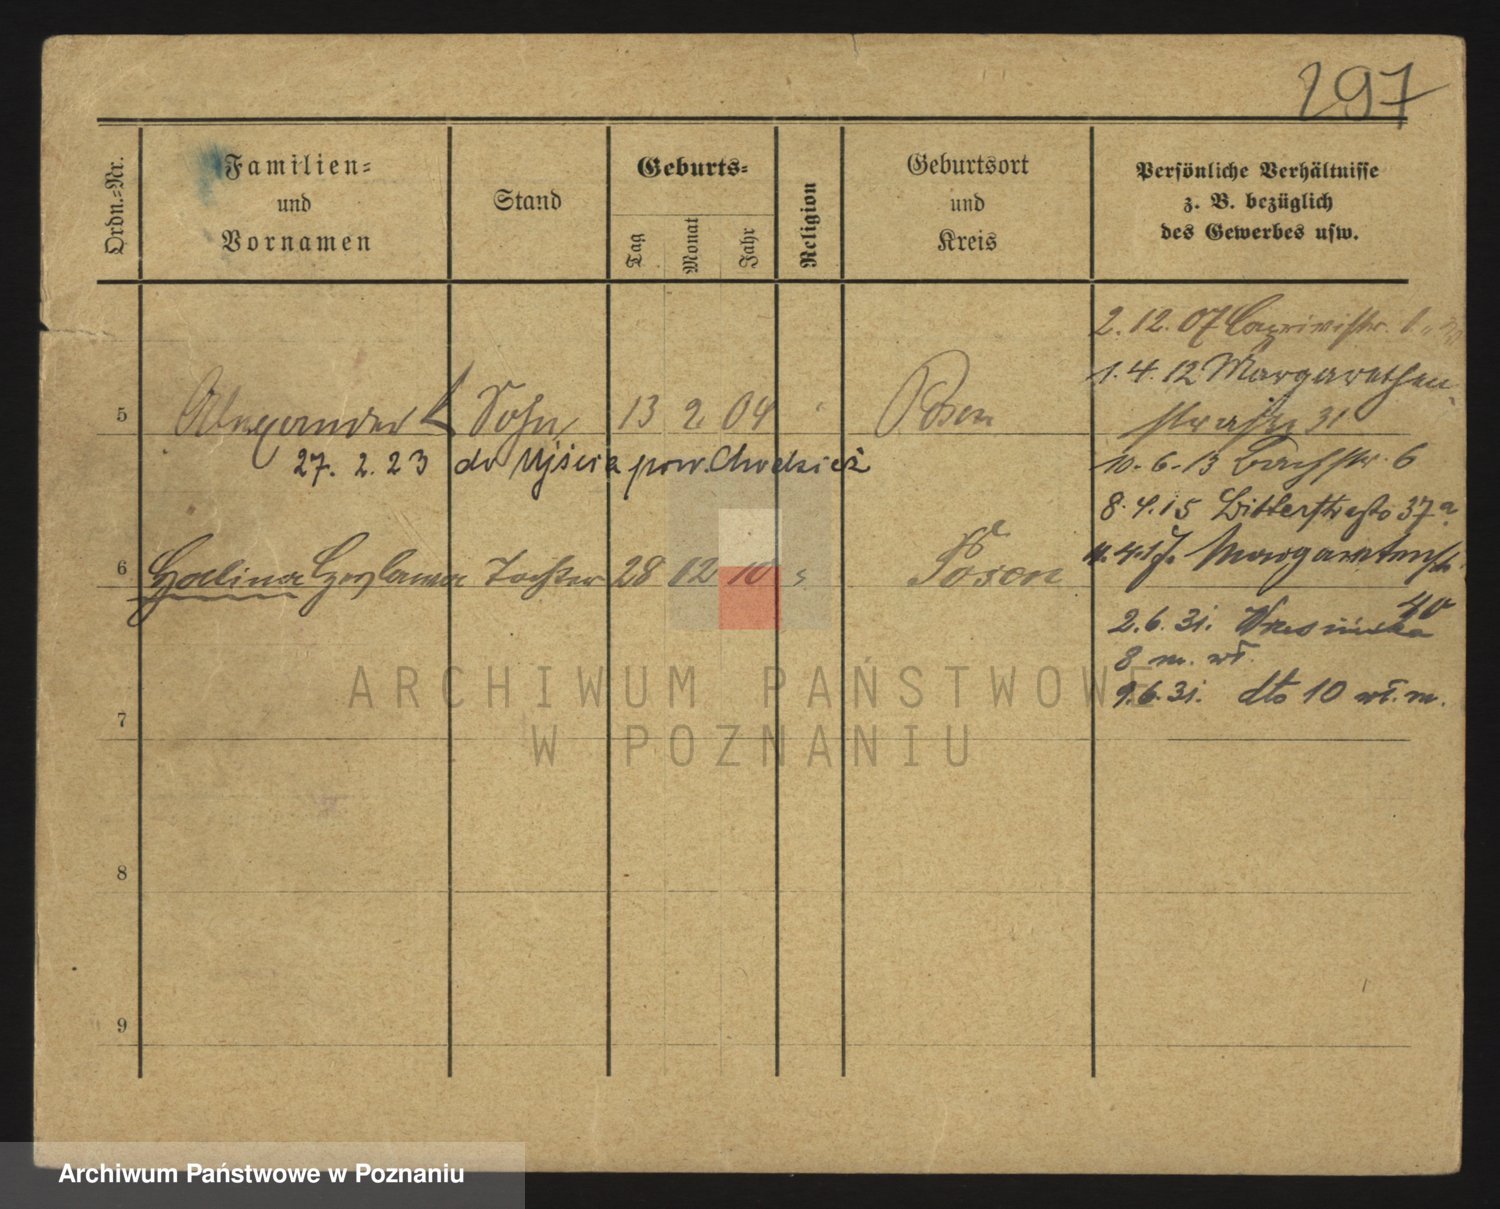 297
Ordn.-Nr.
Familien-
und
Vornamen
Stand
Geburts-
Tag
Monat
Jahr
Religion
Geburtsort
und
Kreis
Persönliche Verhältnisse
z. B. bezüglich
des Gewerbes usw.
2. 12. 07 Caprivistr.
1. 4. 12 Margarethen
5 Alexander Sohn 13 2 04 " Posen
straße 31
27. 2. 23 do Ujścia pow. Chodzież
10. 6. 13 Bachstr. 6
8. 4. 15 37a
6 Halina Tochter 28 12 10 " Posen
Margaretenstr.
40
2. 6. 31. Wrzesińska
8 m. wł.
9. 6. 31. dto 10 wł. m.
7
8
9
ARCHIWUM PAŃSTWOWE
W POZNANIU
Archiwum Państwowe w Poznaniu